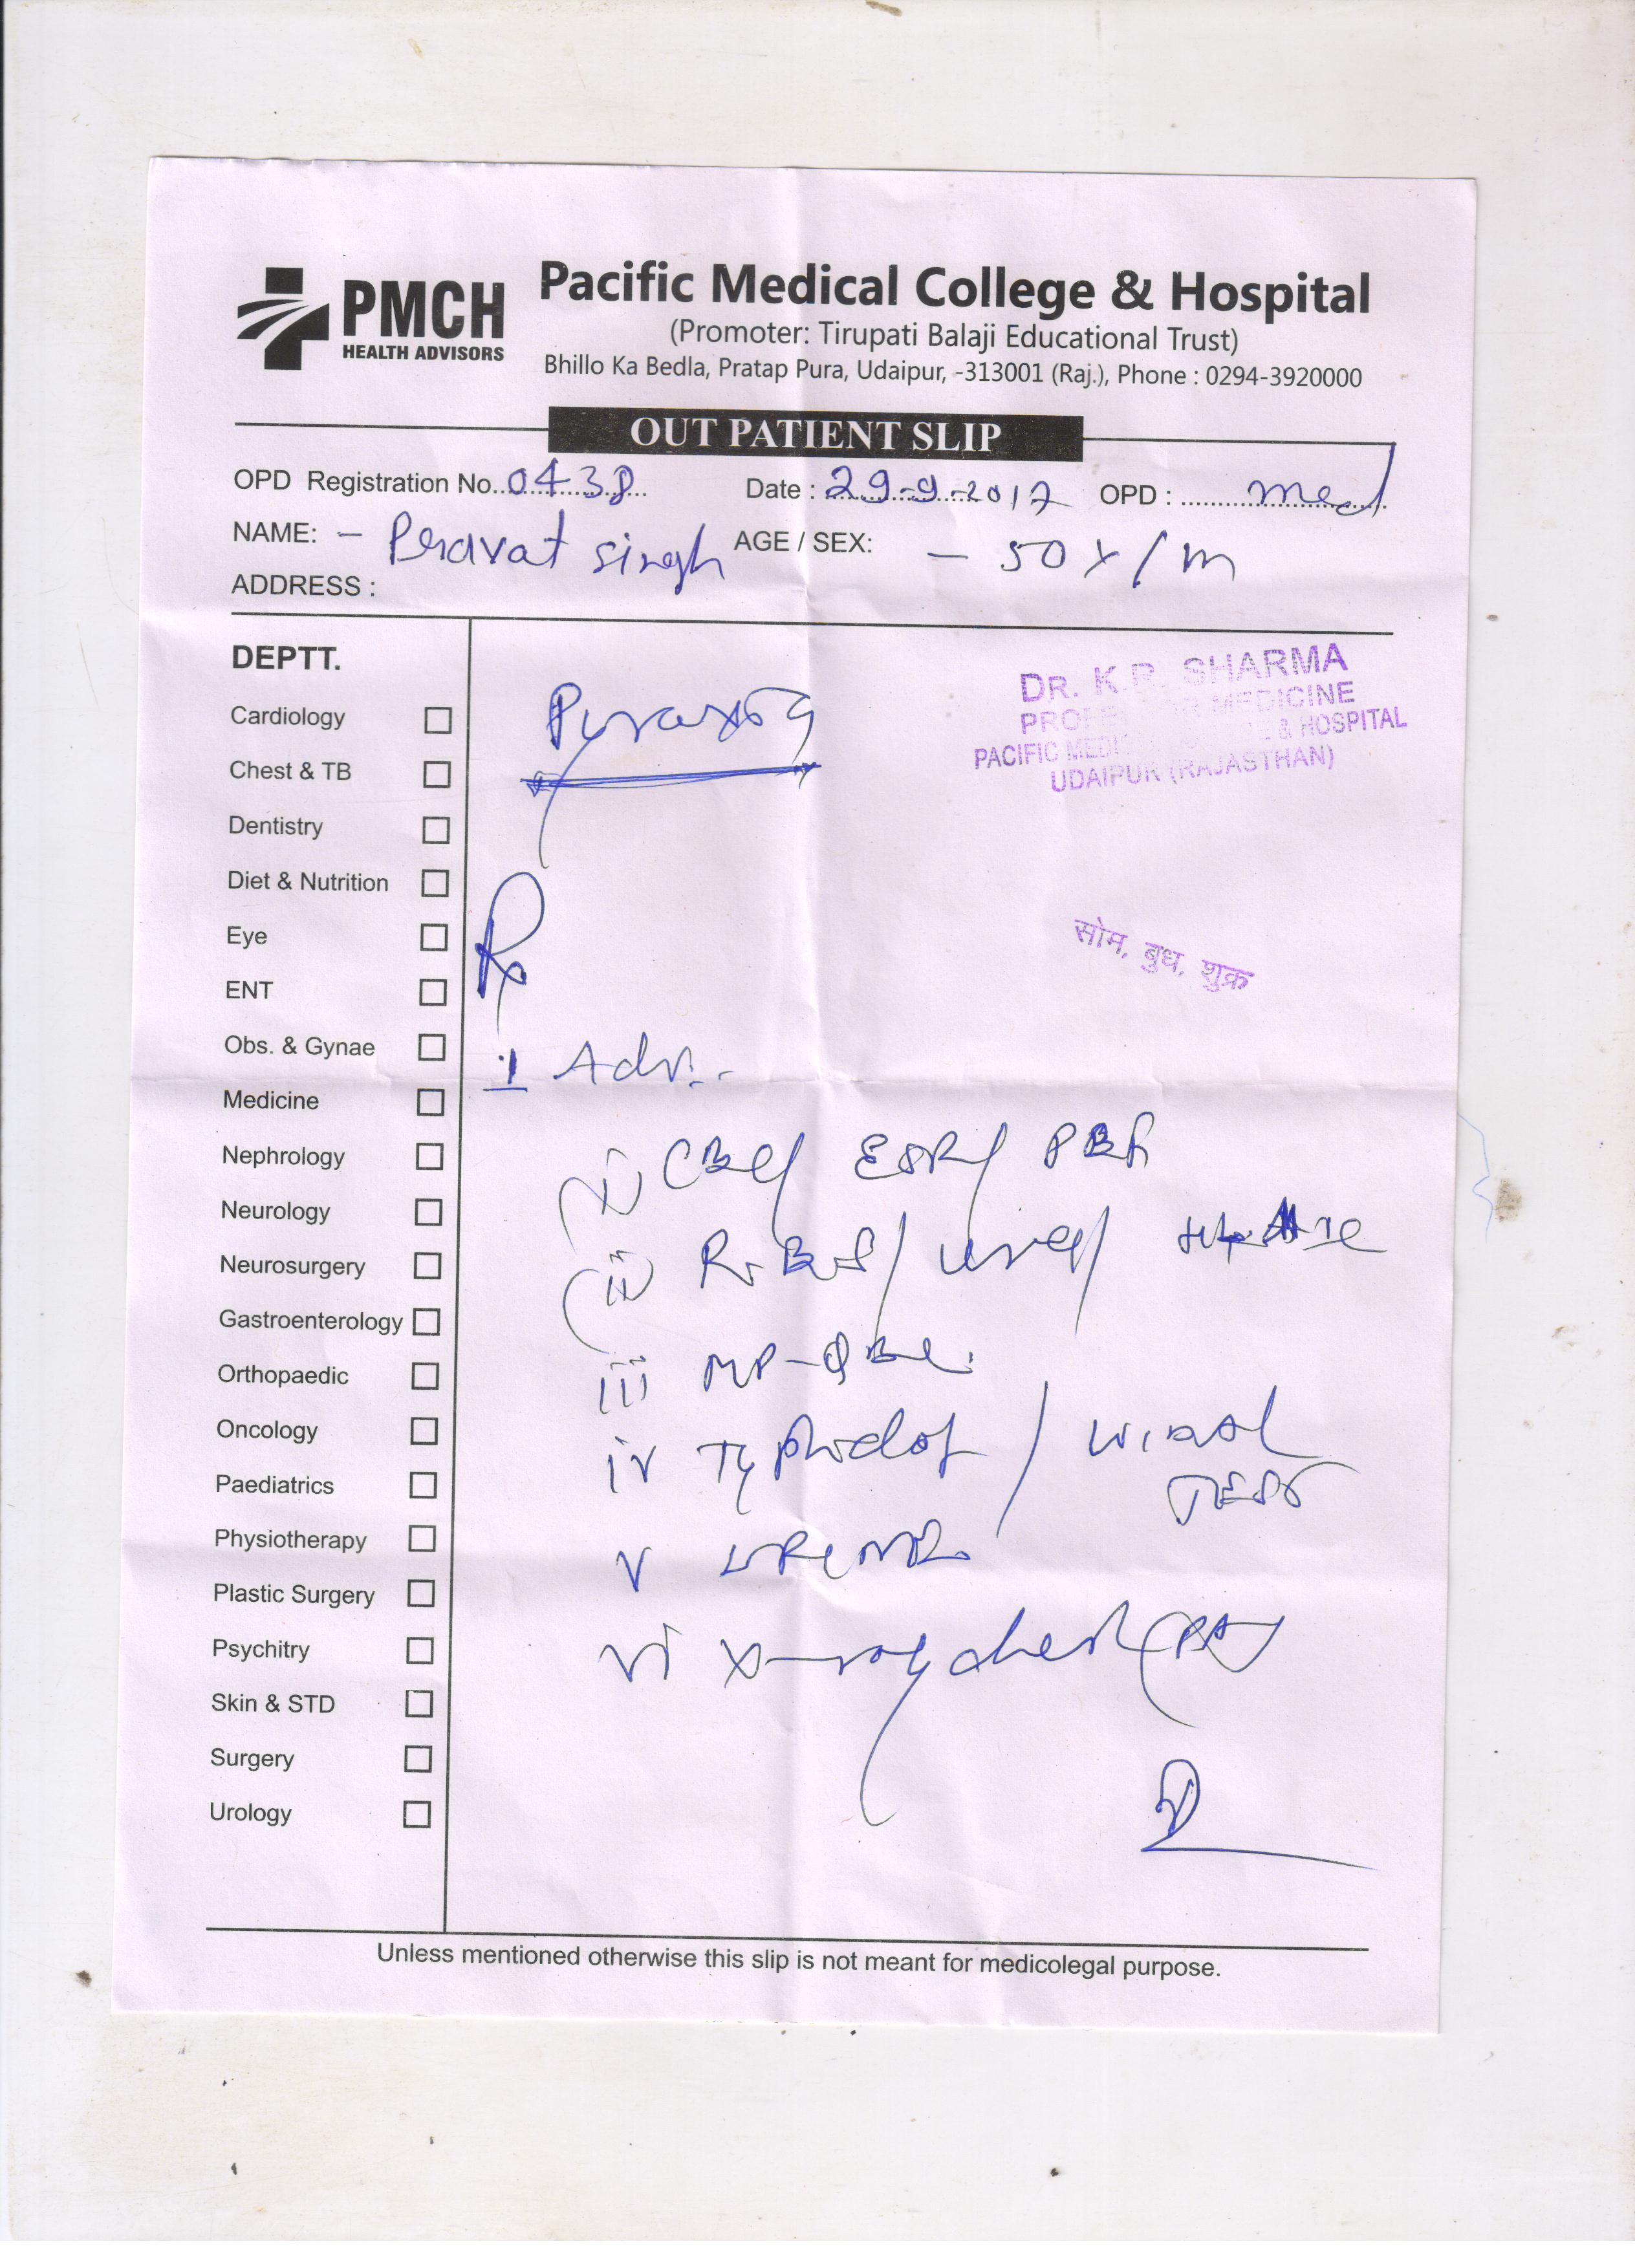 PMCH
HEALTH ADVISORS
Pacific Medical College & Hospital
(Promoter: Tirupati Balaji Educational Trust)
Bhillo Ka Bedla, Pratap Pura, Udaipur, -313001 (Raj.), Phone : 0294-3920000
OUT PATIENT SLIP
OPD Registration No. 0438 Date : 29-9-2017 OPD : Med
NAME: - Pravat singh AGE / SEX: - 50 Y / M
ADDRESS :
DEPTT.
Cardiology
Chest & TB
Dentistry
Diet & Nutrition
Eye
ENT
Obs. & Gynae
Medicine
Nephrology
Neurology
Neurosurgery
Gastroenterology
Orthopaedic
Oncology
Paediatrics
Physiotherapy
Plastic Surgery
Psychitry
Skin & STD
Surgery
Urology
DR. K.R. SHARMA
MEDICINE
PACIFIC & HOSPITAL
UDAIPUR (RAJASTHAN)
सोम, बुध, शुक्र
Rx
1 Adv.
i CBC/ ESR/ PBF
ii R.B.S/ urea/
iii MP-QBC
iv Typhidot / Widal
TEST
v
vi X-ray chest (PA)
Unless mentioned otherwise this slip is not meant for medicolegal purpose.